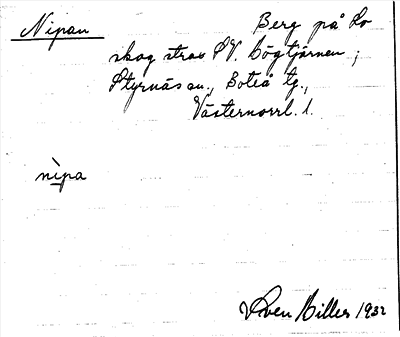 Nipan Berg på Lo
skog strax SV. Lögtjärnen;
Styrnäs sn., Boteå tg.,
Västernorrl. l.
nìpa
Sven Miller 1932